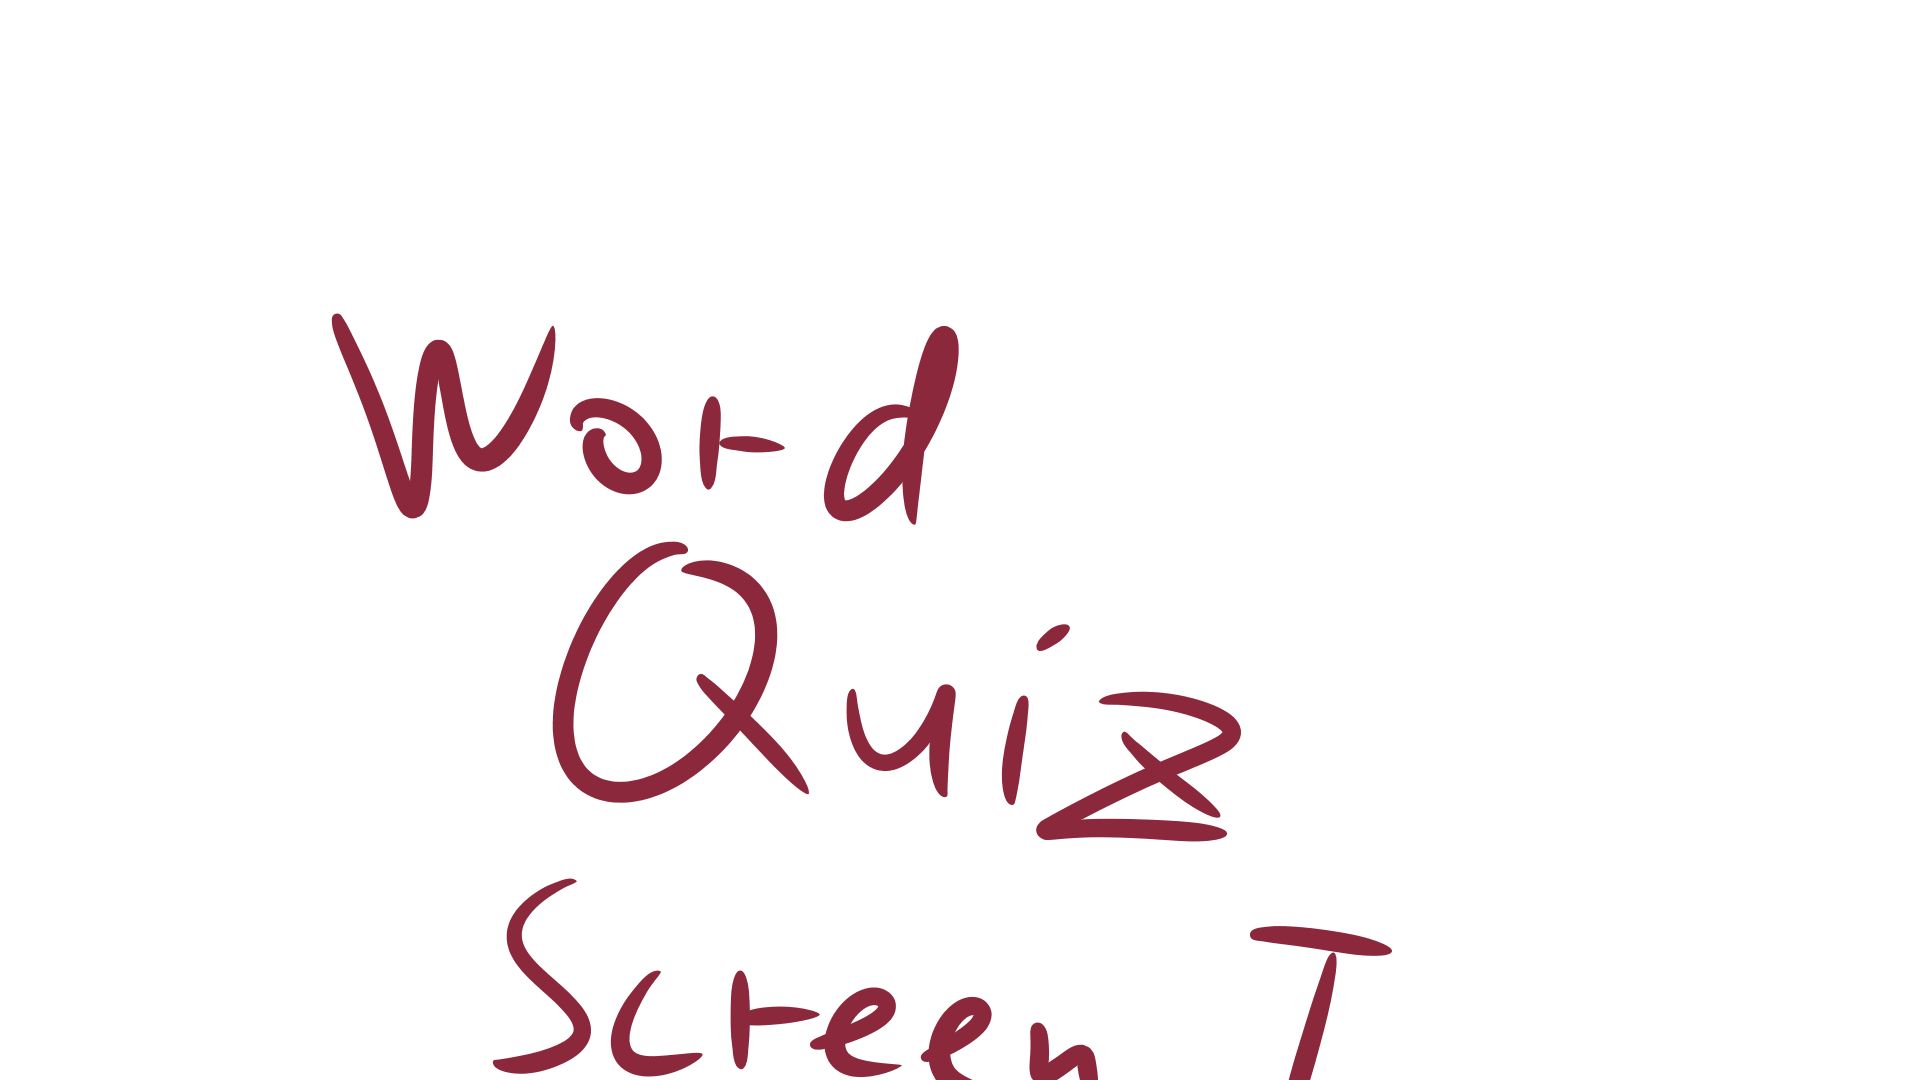 Word
Quiz
Screen T